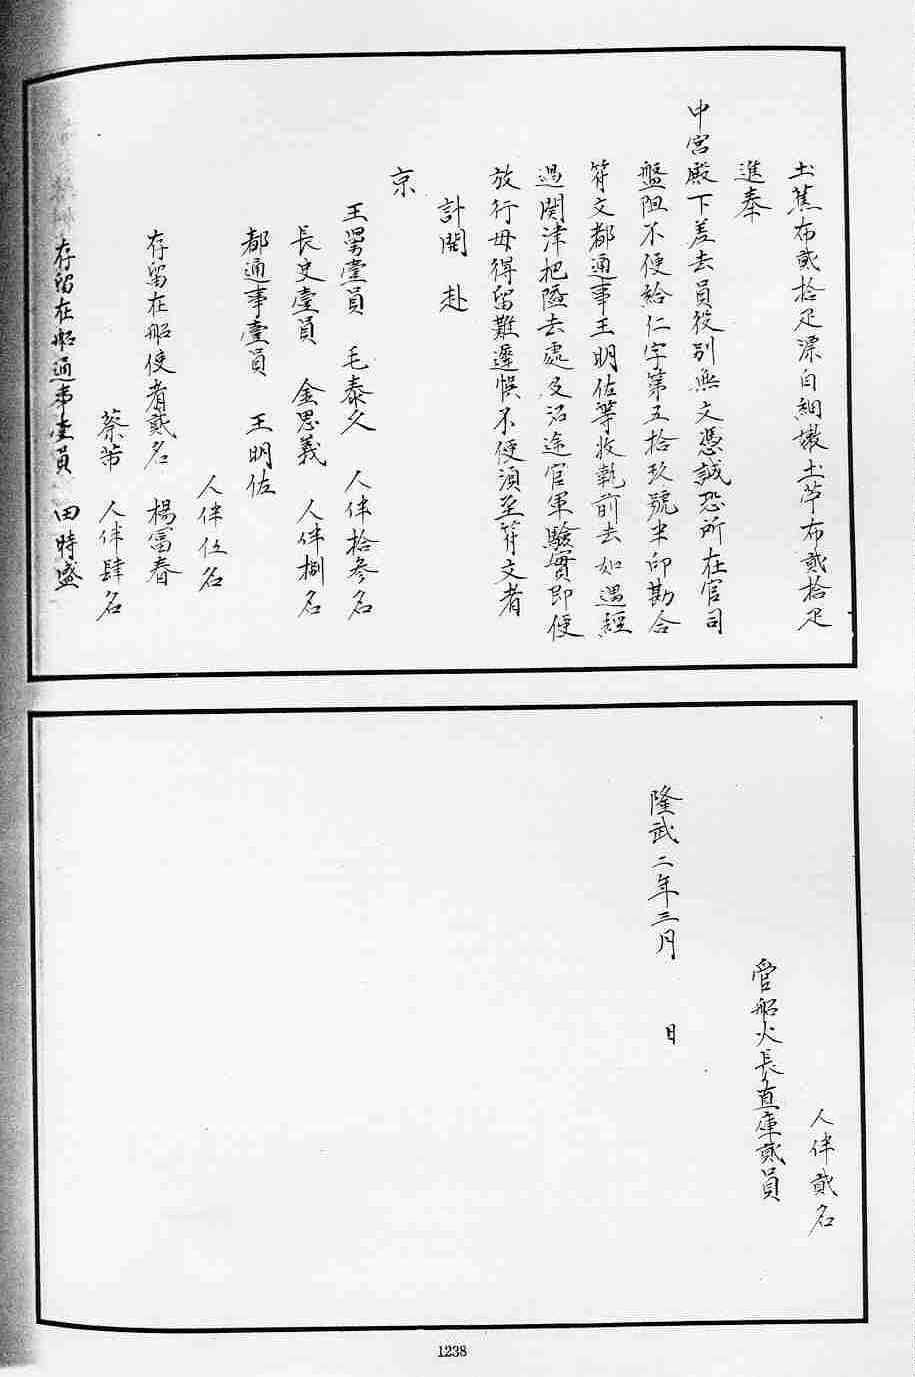 土蕉布貳拾疋漂白細嫩土苧布貳拾疋
進奉
中宮殿下差去員役別無文憑誠恐所在官司
盤阻不便給仁字第五拾玖號半印勘合
符文都通事王明佐等收執前去如遇經
過関津把隘去處及沿途官軍驗實即便
放行毋得留難遲悞不便須至符文者
計開　赴
京
王舅壹員　毛泰久　人伴拾叄名
長史壹員　金思義　人伴捌名
都通事壹員　王明佐
人伴伍名
存留在船使者貳名　楊冨春
蔡　人伴肆名
存留在船通事壹員　田時盛
人伴貳名
管船火長直庫貳員
隆武二年三月　日
1238